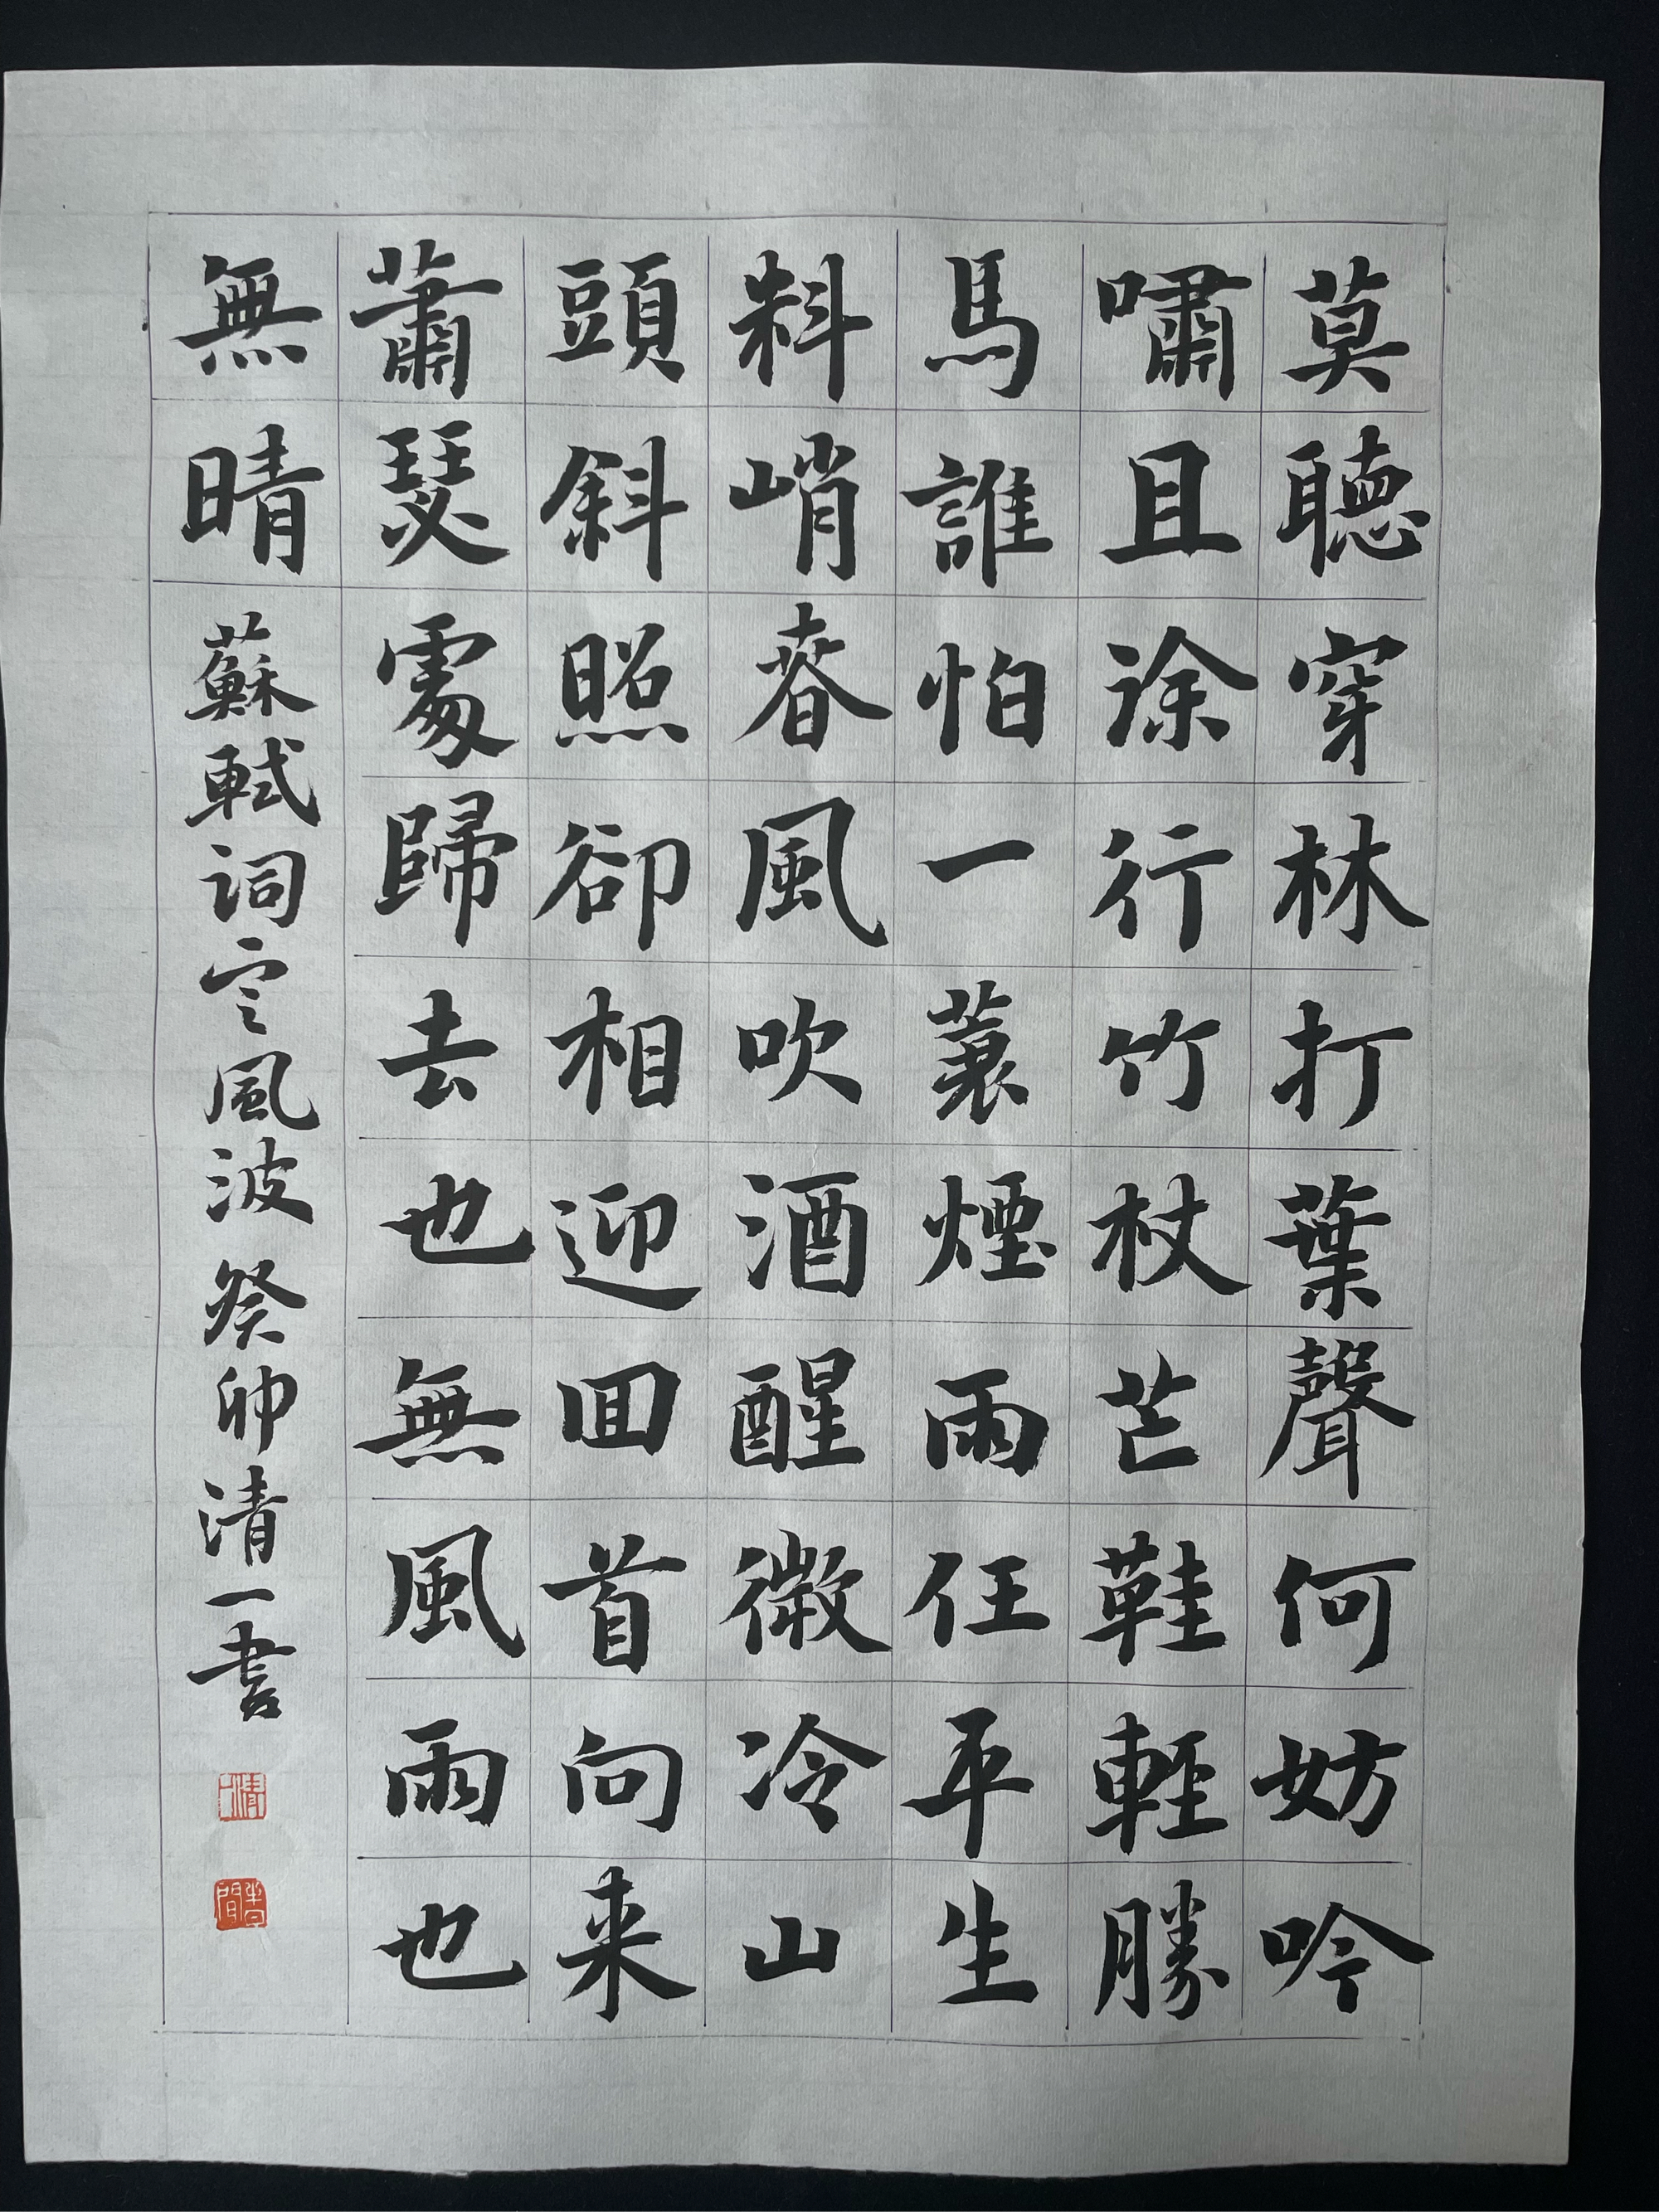 莫聽穿林打葉聲何妨吟
嘯且涂行竹杖芒鞋輕勝
馬誰怕一蓑煙雨任平生
料峭春風吹酒醒微冷山
頭斜照卻相迎回首向来
蕭瑟處歸去也無風雨也
無晴
蘇軾詞定風波癸卯清一書
清一